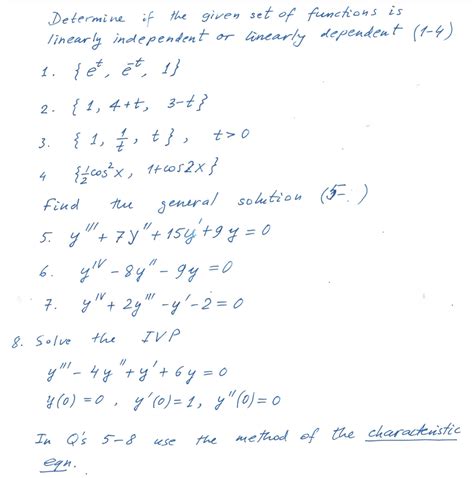 Determine if the given set of functions is
linearly independent or linearly dependent (1-4)
1. {e^t, e^-t, 1}
2. {1, 4+t, 3-t}
3. {1, 1/t, t}, t>0
4 {1/2 cos²x, 1+cos2x}
Find the general solution (5- )
5. y''' + 7y'' + 15y' + 9y = 0
6. y^IV - 8y'' - 9y = 0
7. y^IV + 2y''' - y' - 2 = 0
8. Solve the IVP
y''' - 4y'' + y' + 6y = 0
y(0) = 0, y'(0) = 1, y''(0) = 0
In Q's 5-8 use the method of the characteristic
eqn.